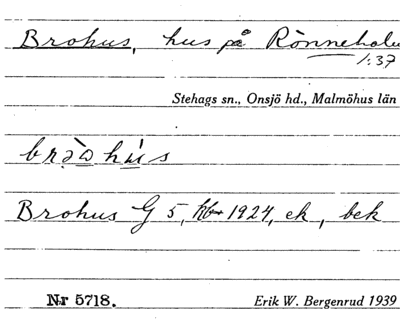 Brohus, hus på Rönneholm
1:37
Stehags sn., Onsjö hd., Malmöhus län
Brohus G 5, Kbr 1924, ek, bek
Nr 5718. Erik W. Bergenrud 1939